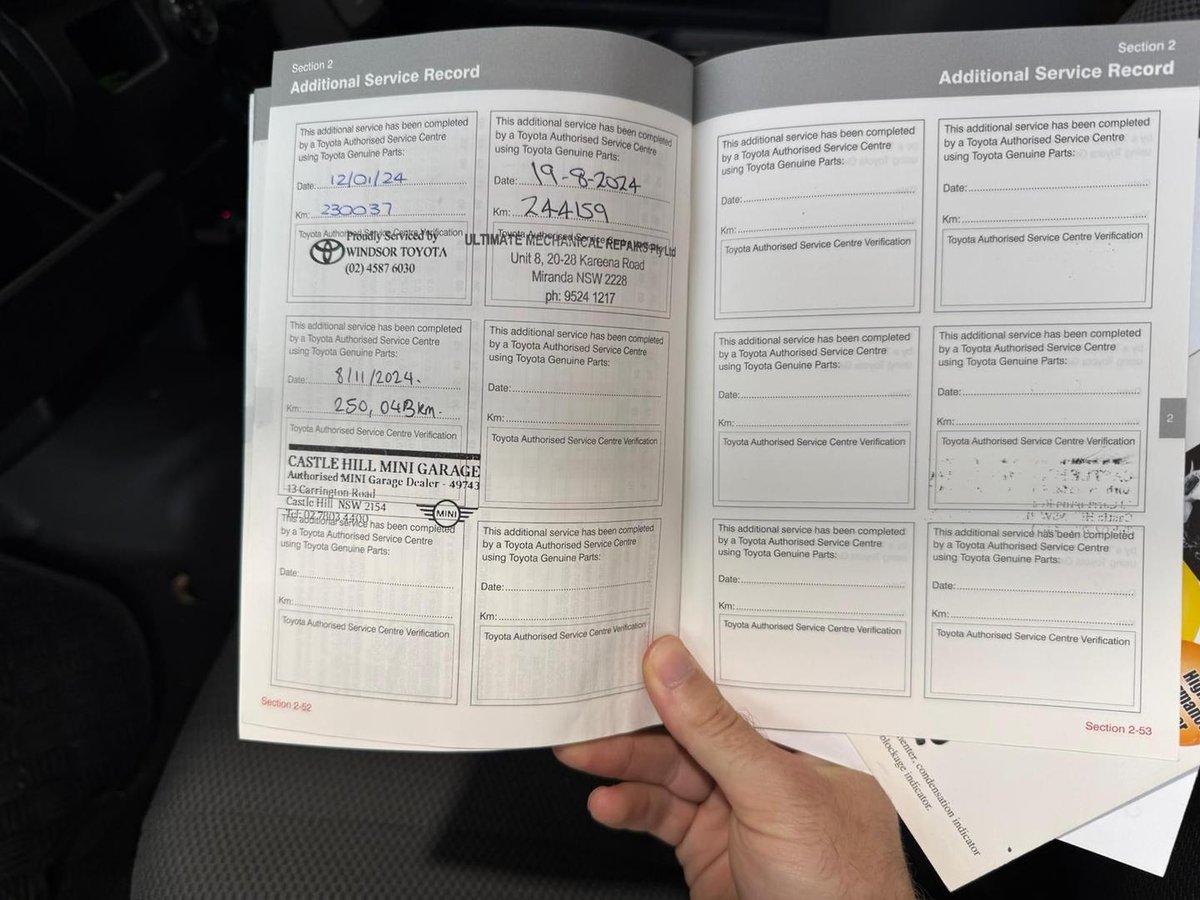 Section 2
Additional Service Record
This additional service has been completed
by a Toyota Authorised Service Centre
using Toyota Genuine Parts:
Date: 12/01/24
Km: 230037
Toyota Authorised Service Centre Verification
Proudly Serviced by
WINDSOR TOYOTA
(02) 4587 6030
This additional service has been completed
by a Toyota Authorised Service Centre
using Toyota Genuine Parts:
Date: 19-8-2024
Km: 244159
Toyota Authorised Service Centre Verification
ULTIMATE MECHANICAL REPAIRS Pty Ltd
Unit 8, 20-28 Kareena Road
Miranda NSW 2228
ph: 9524 1217
This additional service has been completed
by a Toyota Authorised Service Centre
using Toyota Genuine Parts:
Date: 8/11/2024.
Km: 250,043km.
Toyota Authorised Service Centre Verification
CASTLE HILL MINI GARAGE
Authorised MINI Garage Dealer - 49743
13 Carrington Road
Castle Hill NSW 2154
Tel: 02 7803 4400
MINI
This additional service has been completed
by a Toyota Authorised Service Centre
using Toyota Genuine Parts:
Date:
Km:
Toyota Authorised Service Centre Verification
This additional service has been completed
by a Toyota Authorised Service Centre
using Toyota Genuine Parts:
Date:
Km:
Toyota Authorised Service Centre Verification
This additional service has been completed
by a Toyota Authorised Service Centre
using Toyota Genuine Parts:
Date:
Km:
Toyota Authorised Service Centre Verification
Section 2-52
Section 2
Additional Service Record
This additional service has been completed
by a Toyota Authorised Service Centre
using Toyota Genuine Parts:
Date:
Km:
Toyota Authorised Service Centre Verification
This additional service has been completed
by a Toyota Authorised Service Centre
using Toyota Genuine Parts:
Date:
Km:
Toyota Authorised Service Centre Verification
This additional service has been completed
by a Toyota Authorised Service Centre
using Toyota Genuine Parts:
Date:
Km:
Toyota Authorised Service Centre Verification
This additional service has been completed
by a Toyota Authorised Service Centre
using Toyota Genuine Parts:
Date:
Km:
Toyota Authorised Service Centre Verification
2
This additional service has been completed
by a Toyota Authorised Service Centre
using Toyota Genuine Parts:
Date:
Km:
Toyota Authorised Service Centre Verification
This additional service has been completed
by a Toyota Authorised Service Centre
using Toyota Genuine Parts:
Date:
Km:
Toyota Authorised Service Centre Verification
Section 2-53
condensation indicator
blockage indicator.